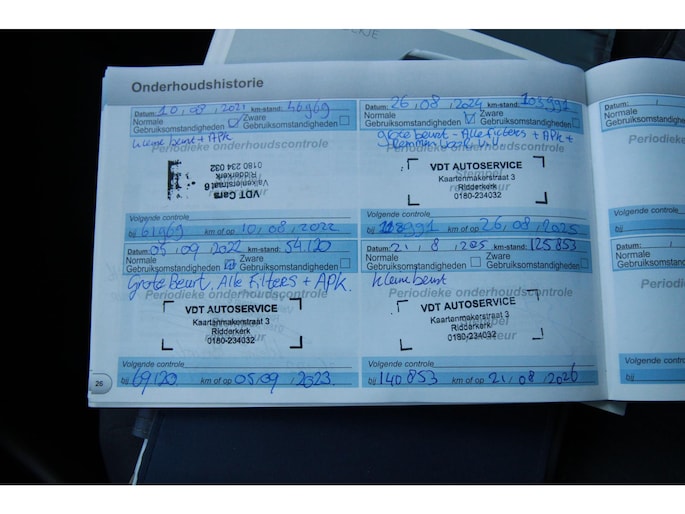 Onderhoudshistorie
Datum: 10, 08, 2021 km-stand: 46969
Normale Gebruiksomstandigheden Zware Gebruiksomstandigheden
kleine beurt + APK
Periodieke onderhoudscontrole
VDT Cars
Valkenierstraat 6
Ridderkerk
0180 234 032
Volgende controle
bij 61969 km of op 10, 08, 2022
Datum: 05, 09, 2022 km-stand: 54.120
Normale Gebruiksomstandigheden Zware Gebruiksomstandigheden
Grote Beurt, Alle Filters + APK.
Periodieke onderhoudscontrole
VDT AUTOSERVICE
Kaartenmakerstraat 3
Ridderkerk
0180-234032
Volgende controle
bij 69120 km of op 05, 09, 2023
26
Datum: 26, 08, 2024 km-stand: 103991
Normale Gebruiksomstandigheden Zware Gebruiksomstandigheden
grote beurt - Alle filters + APK +
Remmen
Periodieke onderhoudscontrole
VDT AUTOSERVICE
Kaartenmakerstraat 3
Ridderkerk
0180-234032
Volgende controle
bij 118991 km of op 26, 08, 2025
Datum: 21, 8, 2025 km-stand: 125853
Normale Gebruiksomstandigheden Zware Gebruiksomstandigheden
kleine beurt
Periodieke onderhoudscontrole
VDT AUTOSERVICE
Kaartenmakerstraat 3
Ridderkerk
0180-234032
Volgende controle
bij 140853 km of op 21, 08, 2026
Datum:
Normale
Gebruiksomstandig
Periodi
Volgende controle
bij
Datum:
Normale
Gebruiksomstandig
Periodi
Volgende controle
bij